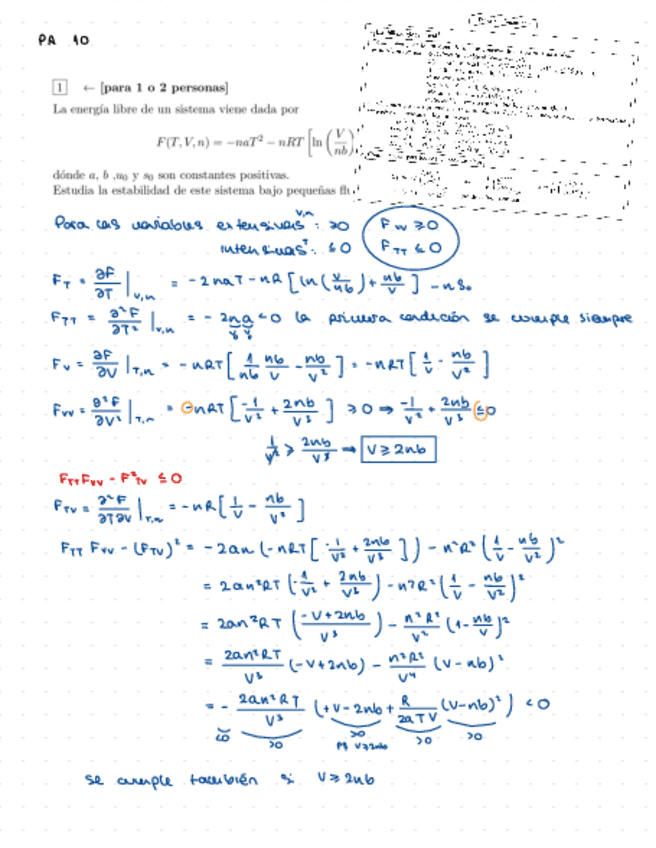 PA 10
1 ← [para 1 o 2 personas]
La energía libre de un sistema viene dada por
F(T, V, n) = −naT² − nRT [ln (V/nb)
dónde a, b ,u₀ y s₀ son constantes positivas.
Estudia la estabilidad de este sistema bajo pequeñas flu
Para las variables extensivas V,n : ≥0 F_VV ≥ 0
intensivas T : ≤ 0 F_TT ≤ 0
F_T = ∂F/∂T |_V,n = -2naT - nR [ln(V/nb) + nb/V] - nS₀
F_TT = ∂²F/∂T² |_V,n = - 2na < 0 la primera condición se cumple siempre
F_V = ∂F/∂V |_T,n = -nRT [1/nb nb/V - nb/V²] = -nRT [1/V - nb/V²]
F_VV = ∂²F/∂V² |_T,n = -nRT [-1/V² + 2nb/V³] ≥ 0 ⇒ -1/V² + 2nb/V³ ≤ 0
1/V² ≥ 2nb/V³ → V ≥ 2nb
F_TT F_VV - F²_TV ≤ 0
F_TV = ∂²F/∂T∂V |_T,n = -nR [1/V - nb/V²]
F_TT F_VV - (F_TV)² = -2an (-nRT [-1/V² + 2nb/V³]) - n²R² (1/V - nb/V²)²
= 2an²RT (-1/V² + 2nb/V³) - n²R² (1/V - nb/V²)²
= 2an²RT ((-V+2nb)/V³) - n²R²/V² (1 - nb/V)²
= 2an²RT/V³ (-V+2nb) - n²R²/V⁴ (V-nb)²
= - 2an²RT/V³ (+V-2nb + R/2aTV (V-nb)²) < 0
<0 >0 >0 >0 >0
pq V≥2nb
se cumple también si V ≥ 2nb